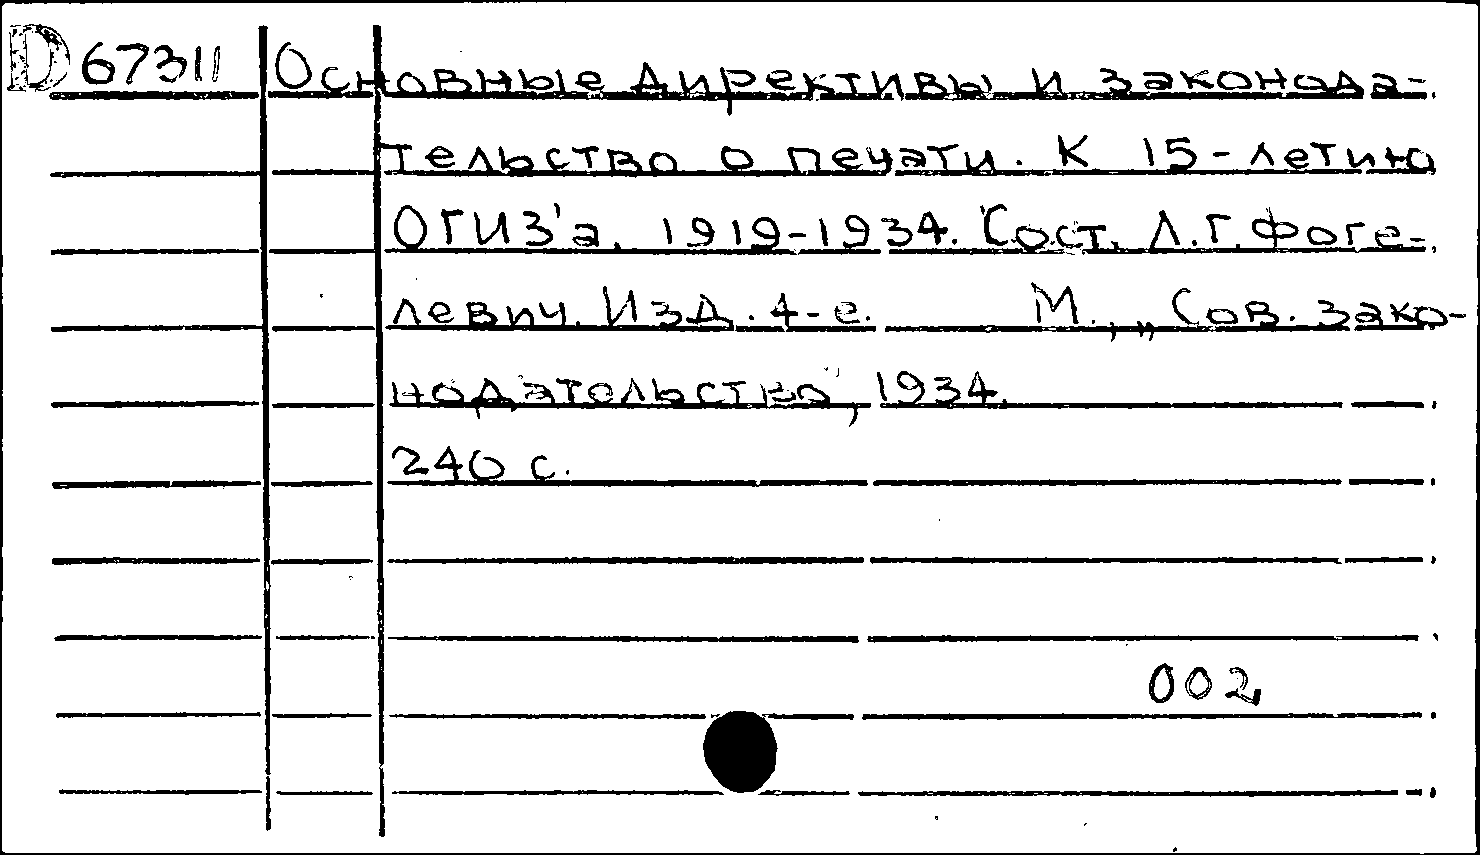 D 67311 Основные директивы и законода-
тельство о печати. К 15-летию
ОГИЗ'а. 1919-1934. Сост. Л.Г. Фоге-
левич. Изд. 4-е. М., „Сов. зако-
нодательство", 1934.
240 с.
002